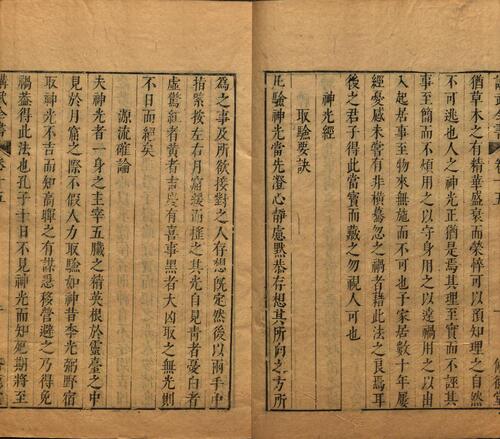 猶草木之有精華盛衰而榮悴可以預知理之自然
不可逃也人之神光正猶是焉其理至實而不誣其
事至簡而不煩用之以守身用之以遠禍用之以由
入起居事至物來無施而不可也子家居數十年屢
經憂感未嘗有非橫驀忽之禍者藉此法之良焉耳
後之君子得此當寶而藏之勿視人可也
神光經
取驗要訣
凡驗神光當先澄心靜慮默恭存想其所向之方所
為之事及所欲接對之人存想既定然後以兩手中
指緊按左右月
虛驚紅者黃者
有喜事黑者大凶取之無光則
不日而終矣
源流確論
夫神光者一身之主宰五臟之精英根於靈臺之中
見於月窟之際不假人力取驗如神昔李光弼野宿
取神光不吉而知高暉之有謀悉移營避之乃得免
禍蓋得此法也孔子十日不見神光而知厄期將至
講武全書
卷十五